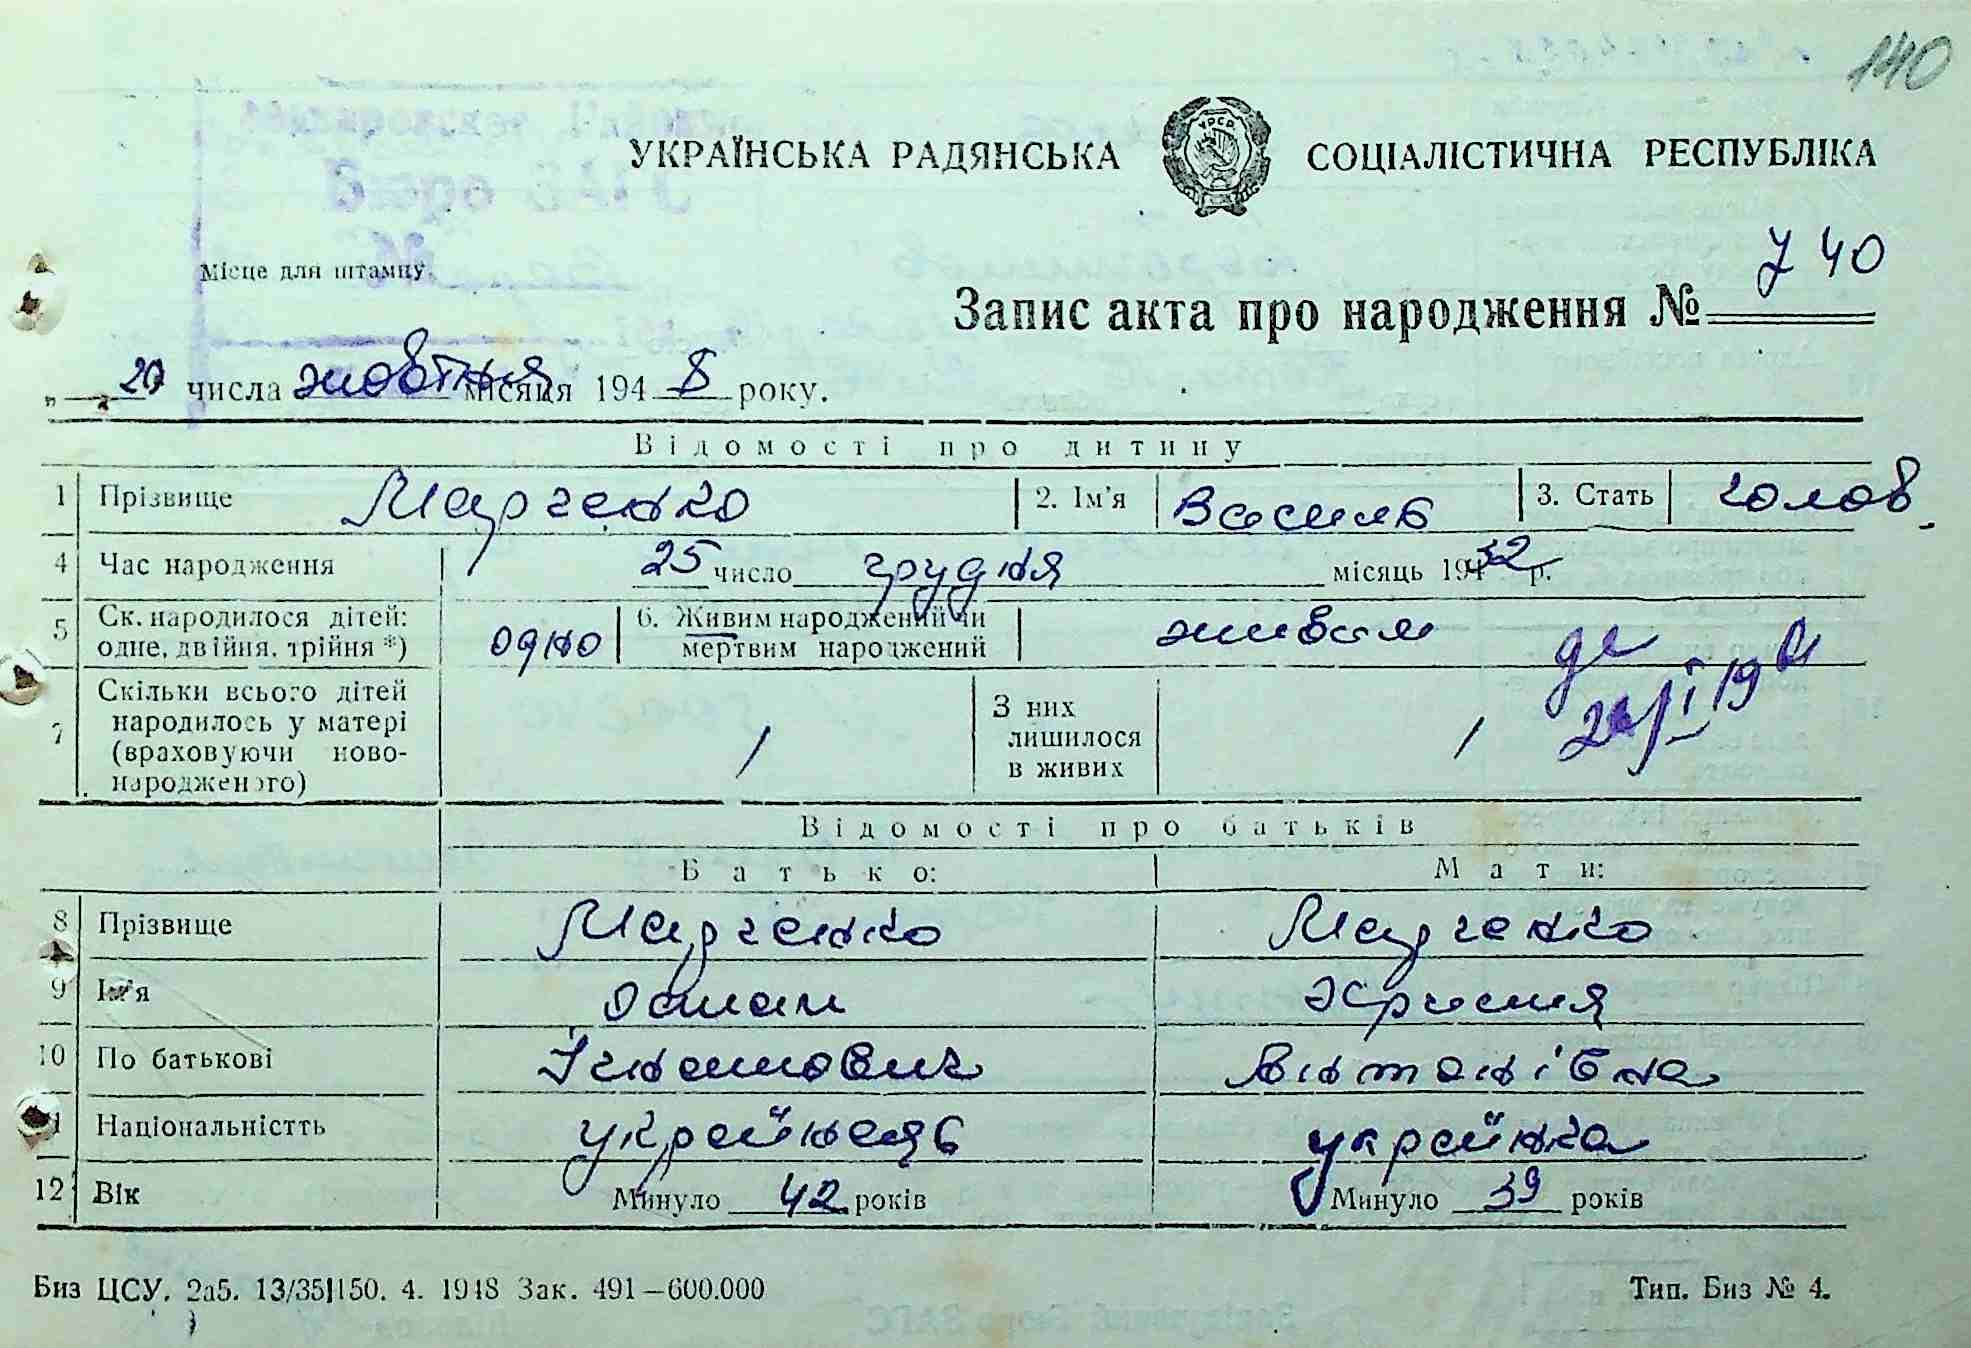 140
УКРАЇНСЬКА РАДЯНСЬКА СОЦІАЛІСТИЧНА РЕСПУБЛІКА
Бюро ЗАГС
Місце для штампу.
Запис акта про народження № 740
„ 20 числа жовтня місяця 1948 року.
Відомості про дитину
1 Прізвище Марченко 2. Ім'я Василь 3. Стать чолов.
4 Час народження 25 число грудня місяць 1932 р.
5 Ск. народилося дітей: одне, двійня, трійня *) одно 6. Живим народжений чи мертвим народжений живим
7 Скільки всього дітей народилось у матері (враховуючи новонародженого) 1 З них лишилося в живих 1
Відомості про батьків
Батько: Мати:
8 Прізвище Марченко Марченко
9 Ім'я Остап Християя
10 По батькові Ігнатович Антонівна
11 Національністть українець українка
12 Вік Минуло 42 років Минуло 39 років
Биз ЦСУ. 2а5. 13/35|150. 4. 1948 Зак. 491—600.000 Тип. Биз № 4.